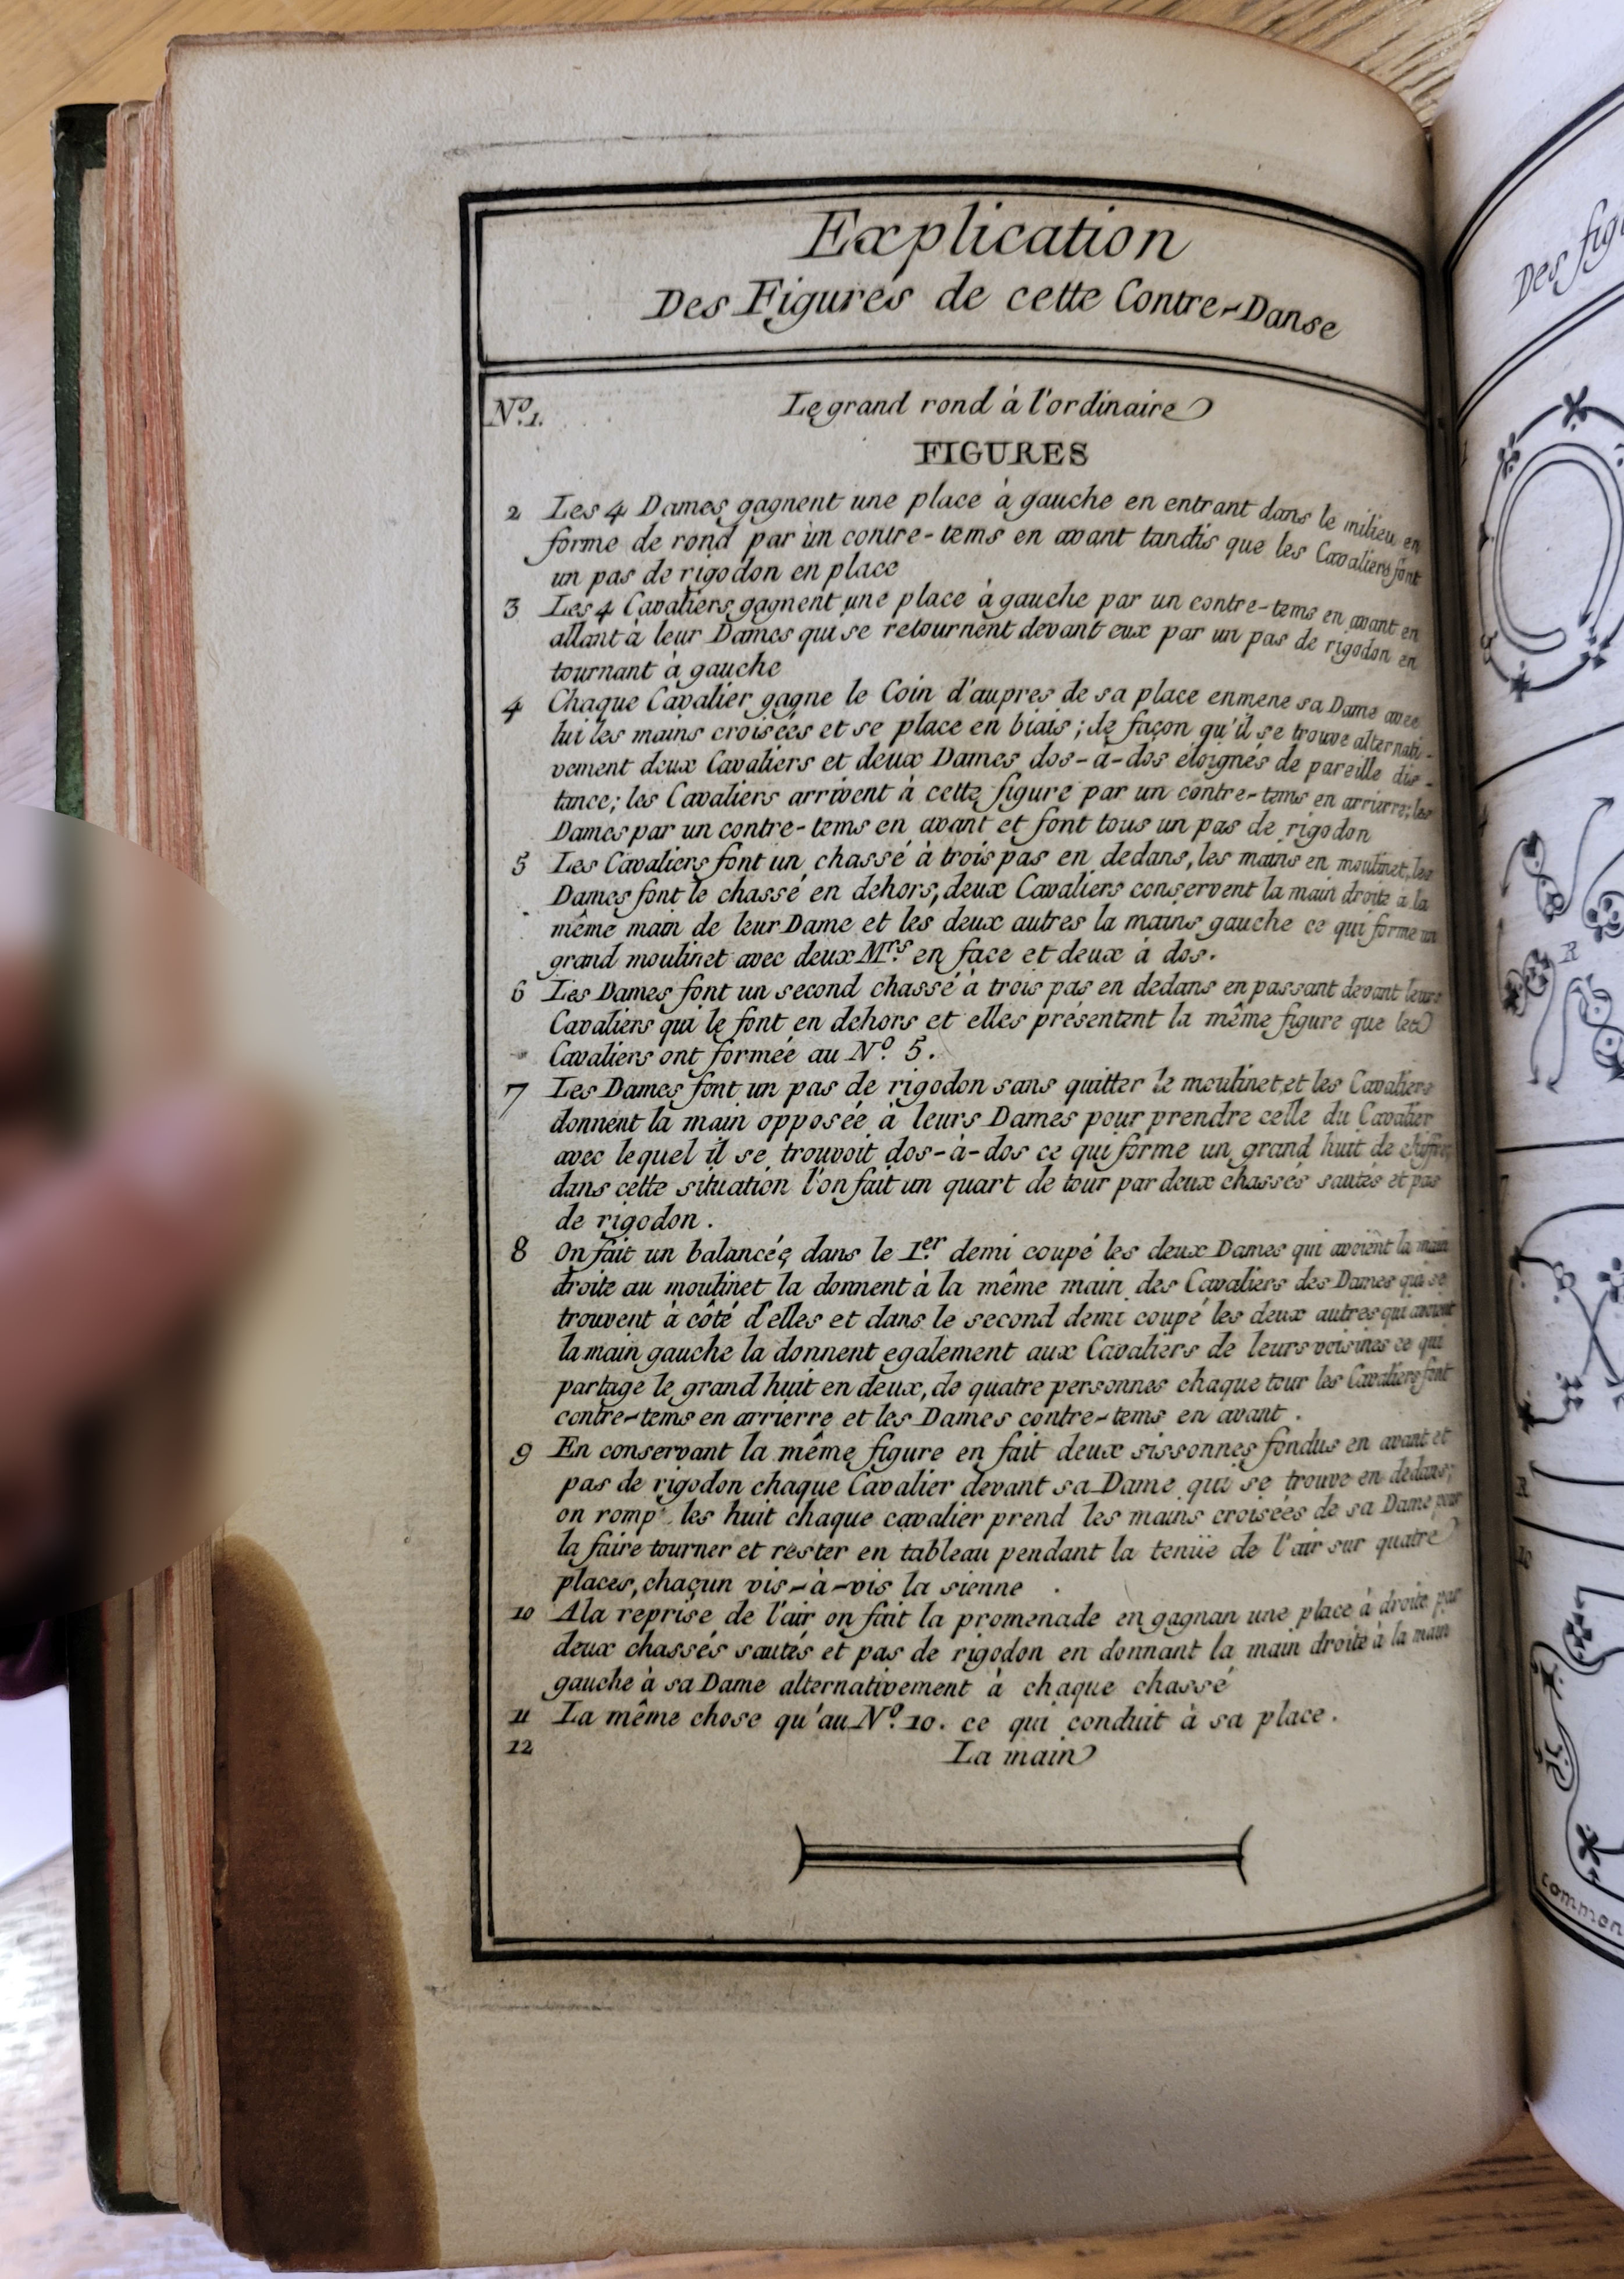 Explication
Des Figures de cette Contre-Danse
N.º 1. Le grand rond à l'ordinaire
FIGURES
2 Les 4 Dames gagnent une place à gauche en entrant dans le milieu en
forme de rond par un contre-tems en avant tandis que les Cavaliers font
un pas de rigodon en place
3 Les 4 Cavaliers gagnent une place à gauche par un contre-tems en avant en
allant à leur Dames qui se retournent devant eux par un pas de rigodon en
tournant à gauche
4 Chaque Cavalier gagne le Coin d'aupres de sa place enmene sa Dame avec
lui les mains croisées et se place en biais; de façon qu'il se trouve alternati-
vement deux Cavaliers et deux Dames dos-à-dos eloignés de pareille dis-
tance; les Cavaliers arrivent à cette figure par un contre-tems en arrierre; les
Dames par un contre-tems en avant et font tous un pas de rigodon
5 Les Cavaliers font un chassé à trois pas en dedans, les mains en moulinet, les
Dames font le chassé en dehors, deux Cavaliers conservent la main droite à la
même main de leur Dame et les deux autres la mains gauche ce qui forme un
grand moulinet avec deux M.rs en face et deux à dos.
6 Les Dames font un second chassé à trois pas en dedans en passant devant leurs
Cavaliers qui le font en dehors et elles présentent la même figure que les
Cavaliers ont formée au N.º 5.
7 Les Dames font un pas de rigodon sans quitter le moulinet et les Cavaliers
donnent la main opposée à leurs Dames pour prendre celle du Cavalier
avec lequel il se trouvoit dos-à-dos ce qui forme un grand huit de chiffre
dans cette situation l'on fait un quart de tour par deux chassés sautés et pas
de rigodon.
8 On fait un balancées dans le 1.er demi coupé les deux Dames qui avoient la main
droite au moulinet la donnent à la même main des Cavaliers des Dames qui se
trouvent à côté d'elles et dans le second demi coupé les deux autres qui avoient
la main gauche la donnent egalement aux Cavaliers de leurs voisines ce qui
partage le grand huit en deux, de quatre personnes chaque tour les Cavaliers font
contre-tems en arrierre et les Dames contre-tems en avant.
9 En conservant la même figure en fait deux sissonnes fondus en avant et
pas de rigodon chaque Cavalier devant sa Dame qui se trouve en dedans;
on romp les huit chaque cavalier prend les mains croisées de sa Dame pour
la faire tourner et rester en tableau pendant la tenüe de l'air sur quatre
places, chaçun vis-à-vis la sienne.
10 A la reprise de l'air on fait la promenade en gagnan une place à droite par
deux chassés sautés et pas de rigodon en donnant la main droite à la main
gauche à sa Dame alternativement à chaque chassé
11 La même chose qu'au N.º 10. ce qui conduit à sa place.
12 La main
Des fig
R
R
10
commen